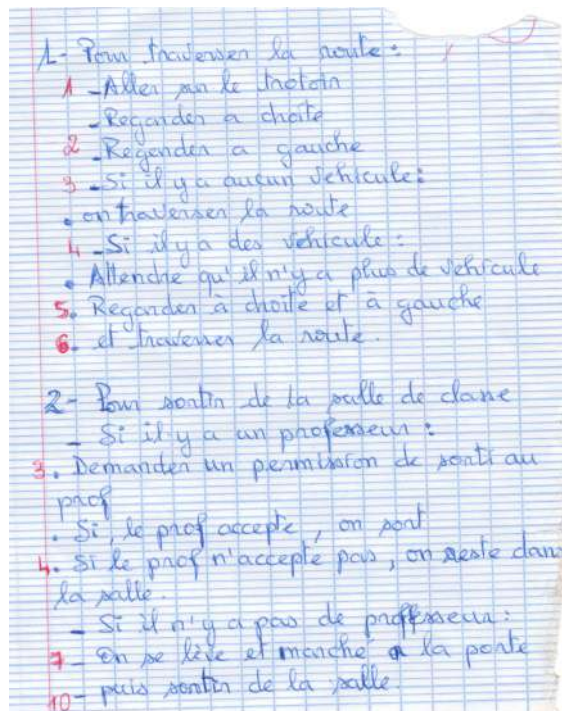 1- Pour traverser la route :
1 -Aller sur le trotoir
-Regarder a droite
2 -Regerder a gauche
3 -Si il y a aucun vehicule :
. on traverser la route
4 -Si il y a des vehicule :
. Attendre qu'il n'y a plus de vehicule
5. Regarder à droite et à gauche
6. et traverser la route.
2- Pour sortir de la salle de classe
- Si il y a un professeur :
3. Demander un permission de sorti au
prof
. Si, le prof accepte, on sort
4. Si le prof n'accepte pas, on reste dans
la salle.
- Si il n'y a pas de proffesseur :
7- On se lève et marche a la porte
10- puis sortir de la salle.